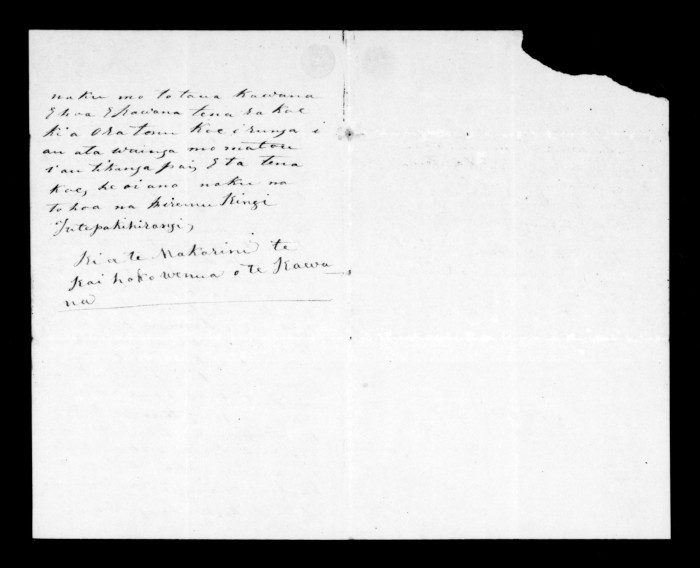 naku mo to taua kawana
E hoa E kawana tena ra koe
kia Ora tonu koe i runga i
au ata wainga mo matou
i au tikanga pai, E ta tena
koe, he oi ano naku na
to hoa na Wiremu Kingi
Tutepakihirangi,
Kia te Makarini te
kai hoko wenua o te Kawa
na